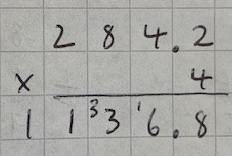 284.2
x 4
1 1 ³3 ¹6.8